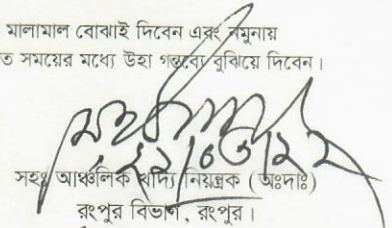 মালামাল বোঝাই দিবেন এবং নমুনায়
ত সময়ের মধ্যে উহা গন্তব্যে বুঝিয়ে দিবেন।
সহঃ আঞ্চলিক খাদ্য নিয়ন্ত্রক (অঃদাঃ)
রংপুর বিভাগ, রংপুর।